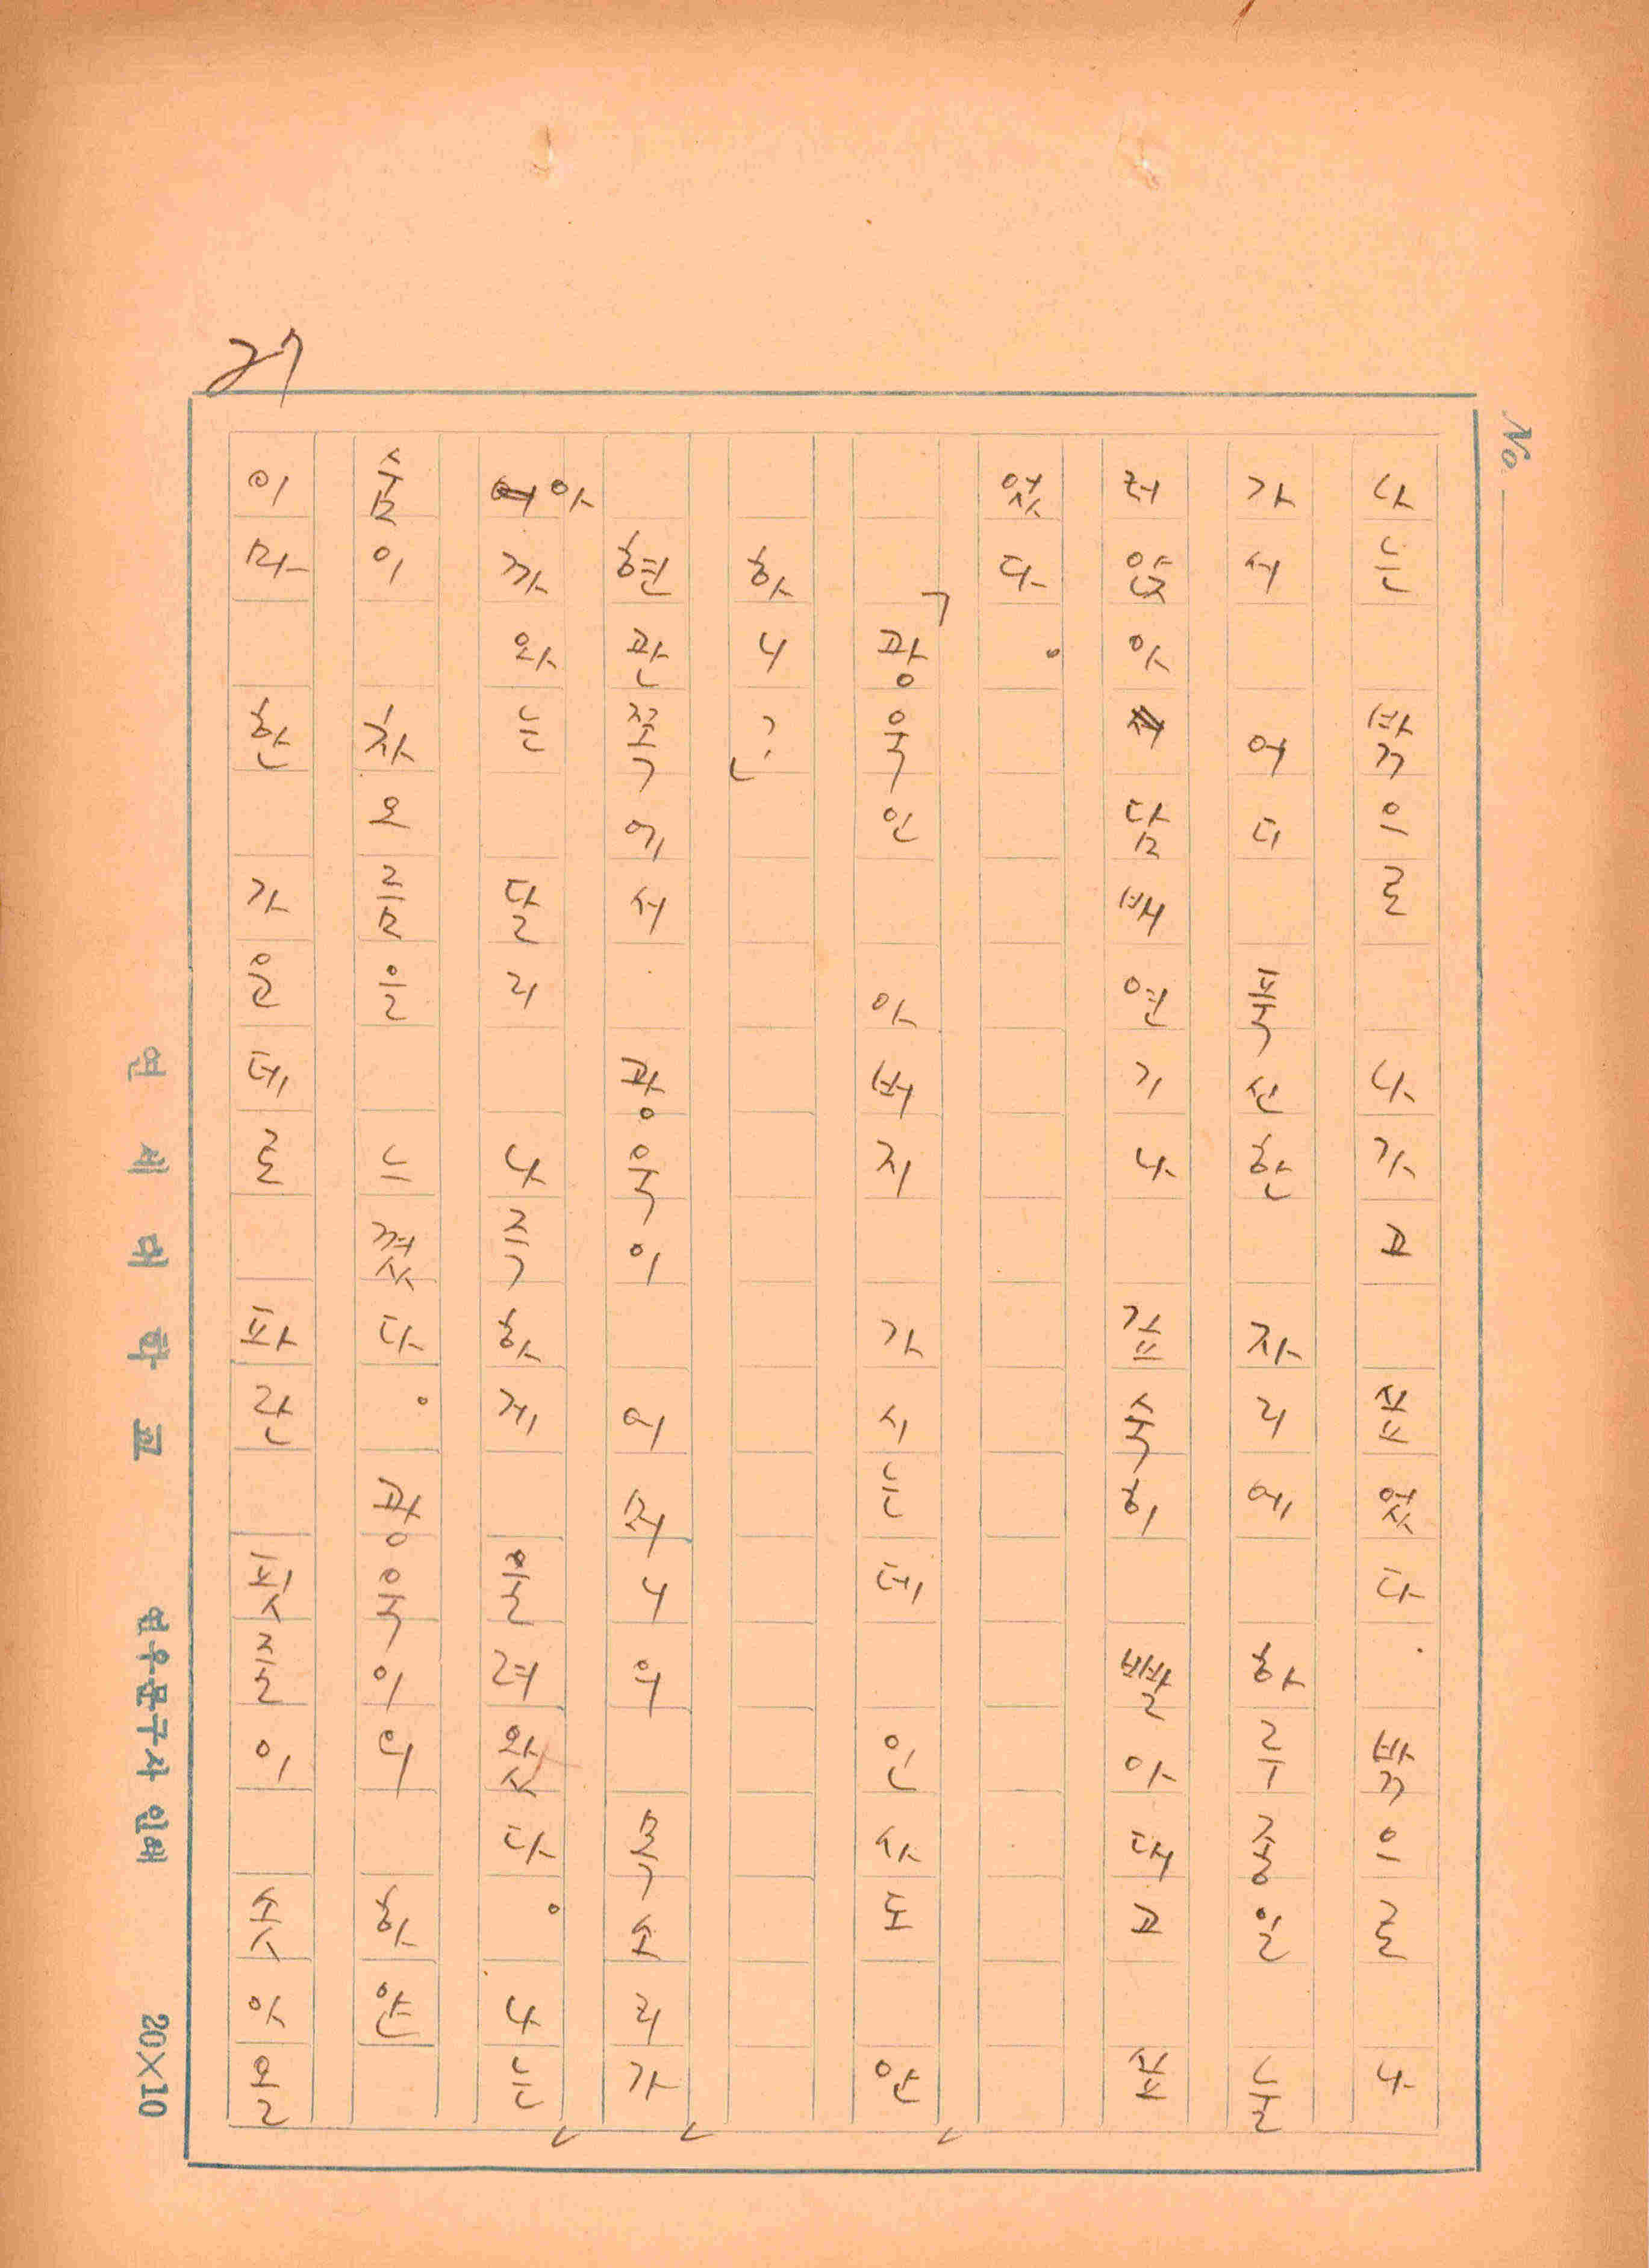 No.
나는 밖으로 나가고 싶었다. 밖으로 나
가서 어디 푹신한 자리에 하루종일 눌
러앉아 담배연기나 깊숙히 빨아대고 싶
었다.
「광욱인 아버지 가시는데 인사도 안
하니?」
현관쪽에서 광욱이 어머니의 목소리가
아까와는 달리 나직하게 울려왔다. 나는
숨이 차오름을 느꼈다. 광욱이의 하얀
이마 한 가운데로 파란 핏줄이 솟아올
27
연세대학교 연우문구사 인쇄 20×10